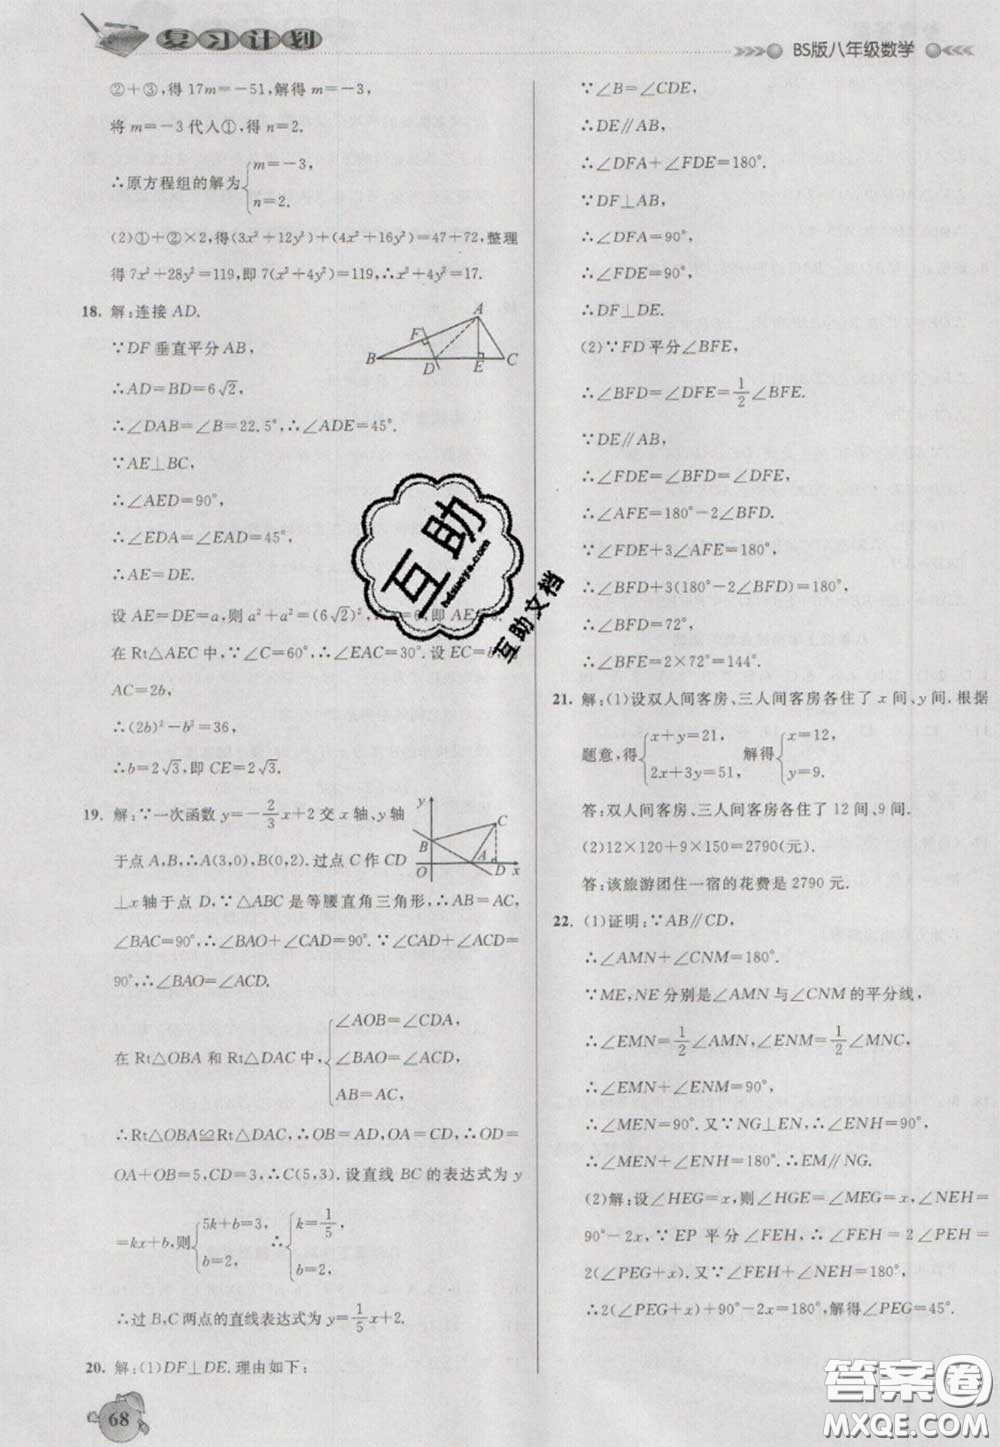 复习计划
BS版八年级数学
②+③,得 17m=-51,解得 m=-3,
将 m=-3 代入①,得 n=2.
∴原方程组的解为{m=-3,
n=2.
(2)①+②×2,得(3x²+12y²)+(4x²+16y²)=47+72,整理
得 7x²+28y²=119,即 7(x²+4y²)=119,∴x²+4y²=17.
18. 解:连接 AD.
∵DF 垂直平分 AB,
∴AD=BD=6√2,
∴∠DAB=∠B=22.5°,∴∠ADE=45°.
∵AE⊥BC,
∴∠AED=90°,
∴∠EDA=∠EAD=45°,
∴AE=DE.
设 AE=DE=a,则 a²+a²=(6√2)²,
=6,即 AE
在 Rt△AEC 中,∵∠C=60°,∴∠EAC=30°.设 EC=b
AC=2b,
∴(2b)²-b²=36,
∴b=2√3,即 CE=2√3.
A
F
B
D
E
C
19. 解:∵一次函数 y=-2/3x+2 交 x 轴、y 轴
于点 A,B,∴A(3,0),B(0,2).过点 C 作 CD
⊥x 轴于点 D,∵△ABC 是等腰直角三角形,∴
∠BAC=90°,∴∠BAO+∠CAD=90°.又∵∠CAD+∠ACD=
90°,∴∠BAO=∠ACD.
y
C
B
O
A
D
x
在 Rt△OBA 和 Rt△DAC 中,{∠AOB=∠CDA,
∠BAO=∠ACD,
AB=AC,
∴Rt△OBA≌Rt△DAC,∴OB=AD,OA=CD,∴OD=
OA+OB=5,CD=3,∴C(5,3).设直线 BC 的表达式为 y
=kx+b,则{5k+b=3,
b=2. ∴{k=1/5,
b=2.
∴过 B,C 两点的直线表达式为 y=1/5x+2.
20. 解:(1)DF⊥DE.理由如下:
68
∵∠B=∠CDE,
∴DE∥AB,
∴∠DFA+∠FDE=180°.
∵DF⊥AB,
∴∠DFA=90°,
∴∠FDE=90°,
∴DF⊥DE.
(2)∵FD 平分∠BFE,
∴∠BFD=∠DFE=1/2∠BFE.
∵DE∥AB,
∴∠FDE=∠BFD=∠DFE,
∴∠AFE=180°-2∠BFD.
∵∠FDE+3∠AFE=180°,
∴∠BFD+3(180°-2∠BFD)=180°,
∴∠BFD=72°,
∴∠BFE=2×72°=144°.
21. 解:(1)设双人间客房、三人间客房各住了 x 间、y 间.根据
题意,得{x+y=21,
2x+3y=51, 解得{x=12,
y=9.
答:双人间客房、三人间客房各住了 12 间、9 间.
(2)12×120+9×150=2790(元).
答:该旅游团住一宿的花费是 2790 元.
22. (1)证明:∵AB∥CD,
∴∠AMN+∠CNM=180°.
∵ME,NE 分别是∠AMN 与∠CNM 的平分线,
∴∠EMN=1/2∠AMN,∠ENM=1/2∠MNC,
∴∠EMN+∠ENM=90°,
∴∠MEN=90°.又∵NG⊥EN,∴∠ENG=90°,
∴∠MEN+∠ENG=180°.∴EM∥NG.
(2)解:设∠HEG=x,则∠HGE=∠MEG=x,∠NEH=
90°-2x,∵EP 平分∠FEH,∴∠FEH=2∠PEH=
2(∠PEG+x).又∵∠FEH+∠NEH=180°,
∴2(∠PEG+x)+90°-2x=180°,解得∠PEG=45°.
互助
hdzuoye.com
互助文档
答案圈
MXQE.COM